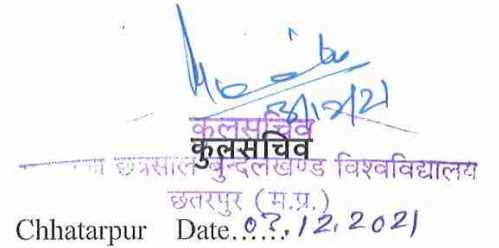 कुलसचिव
कुलसचिव
छत्रसाल बुन्देलखण्ड विश्वविद्यालय
छतरपुर (म.प्र.)
Chhatarpur Date......12.2021